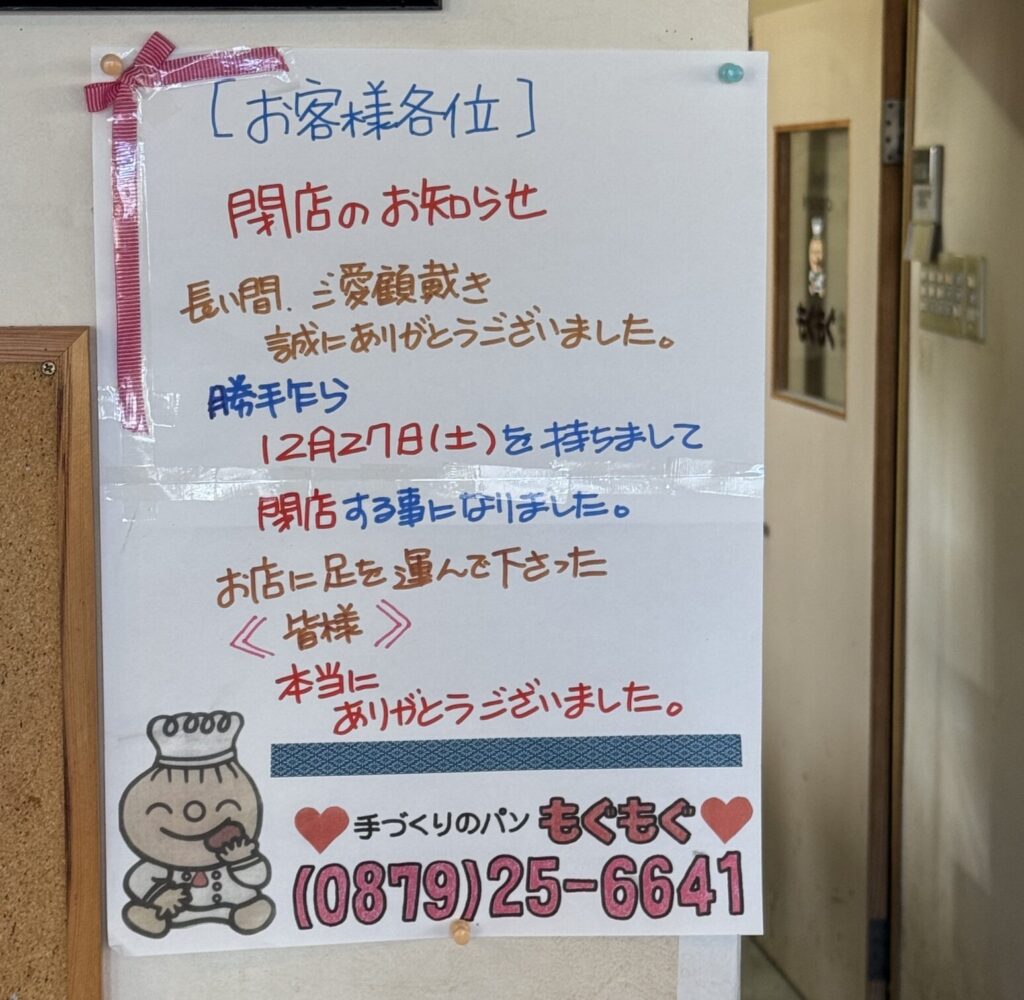 [お客様各位]
閉店のお知らせ
長い間、ご愛顧戴き
誠にありがとうございました。
勝手乍ら
12月27日(土)を持ちまして
閉店する事になりました。
お店に足を運んで下さった
《皆様》
本当に
ありがとうございました。
手づくりのパン もぐもぐ
(0879)25-6641
もぐもぐ